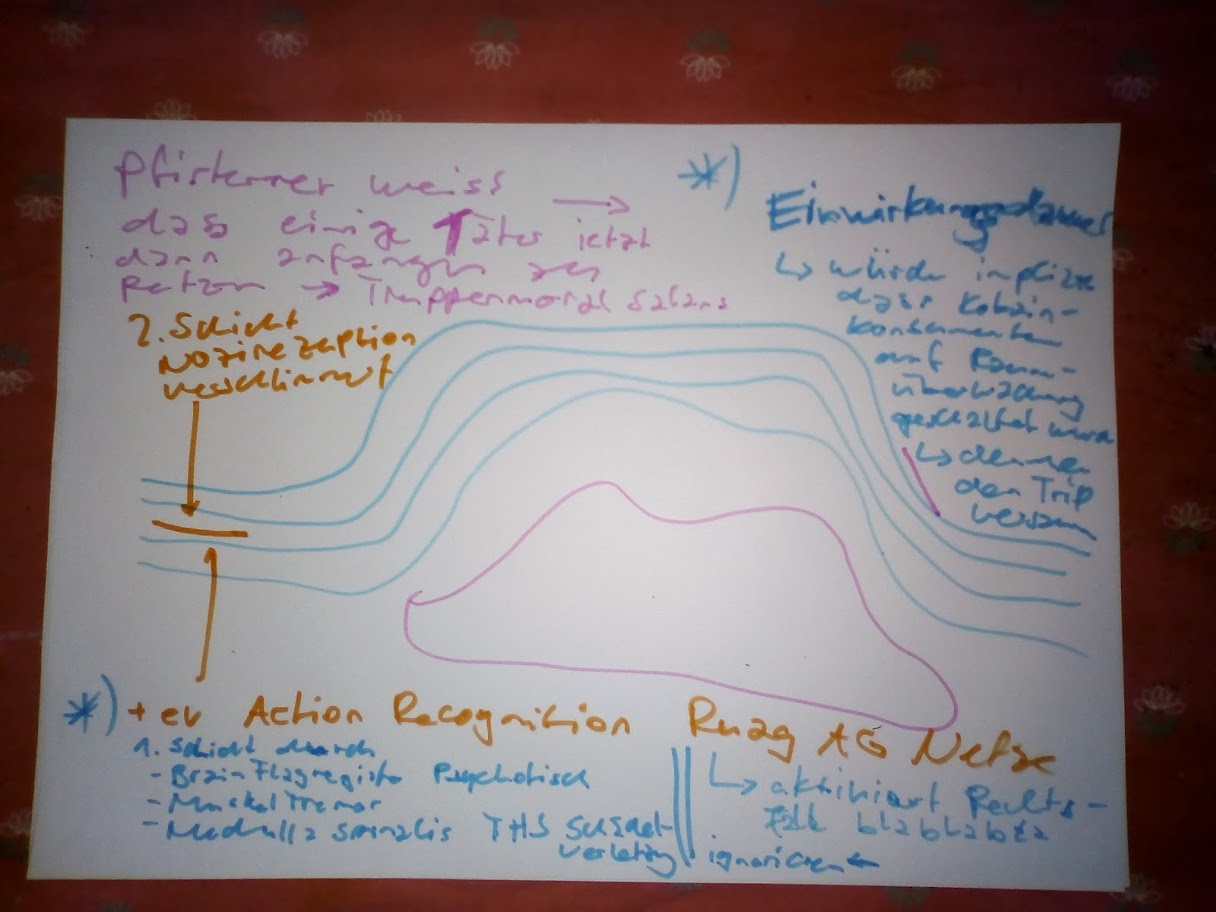 Pfisterer weiss
dass einige Täter jetzt
dann anfangen zu
Petzen → Truppenmoral Satans
*)
Einwirkungsdauer
↳ würde
dass Kokain-
konsumenten
auf Raum-
überwachung
geschaltet
↳ denen
den Trip
2. Schicht
Nozirezeption
verschlimmert
*) + ev Action Recognition Ruag AG Netze
1. Schicht durch
- Brain Flagregister Psychotisch
- Muskel Tremor
- Medulla spinalis THS
↳ aktiviert Rechts-
Fall blablabla
ignorieren ←